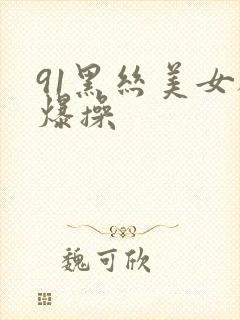 91黑丝美女
爆操
魏可欣